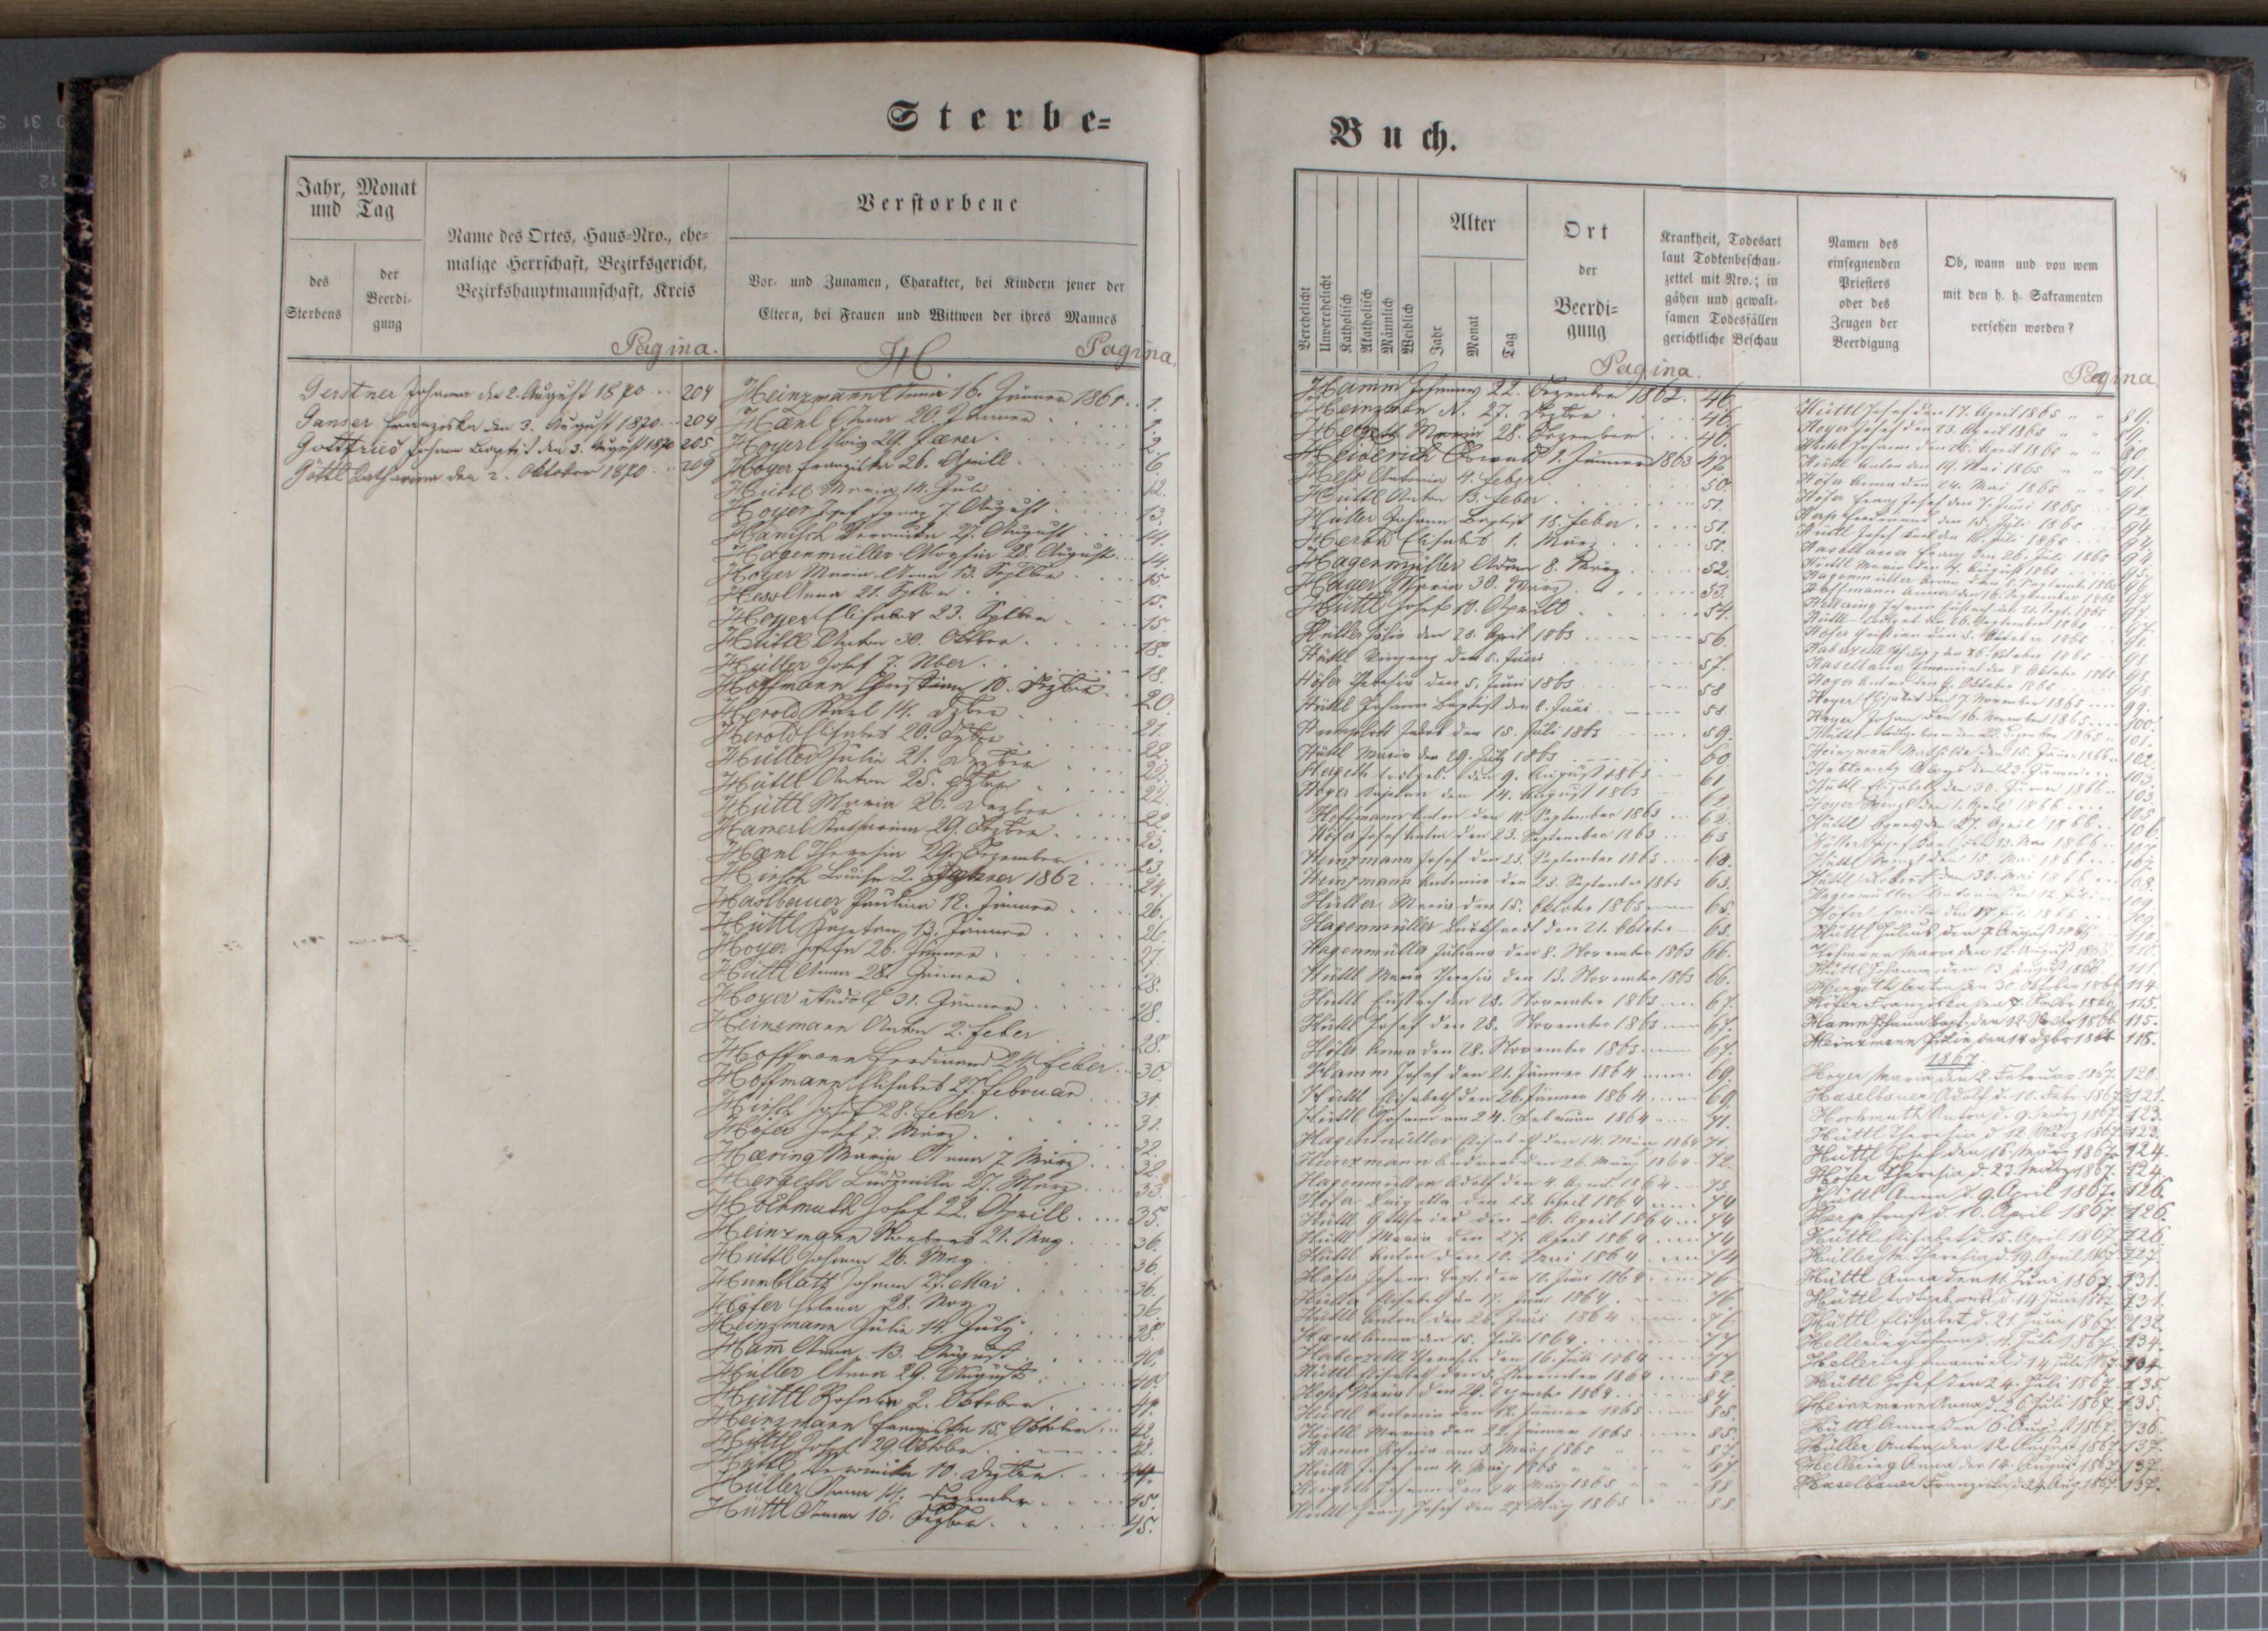 Sterbe=
Jahr, Monat
und Tag
des
Sterbens
der
Beerdi-
gung
Name des Ortes, Haus=Nro., ehe=
malige Herrschaft, Bezirksgericht,
Bezirkshauptmannschaft, Kreis
Pagina.
Verstorbene
Vor- und Zunamen, Charakter, bei Kindern jener der
Eltern, bei Frauen und Wittwen der ihres Mannes
H
Pagina.
Gerstner Johann den 2. August 1870 204
Ganser Franziska den 3. August 1870 204
Gottfried Johann Baptist den 3. August 1870 205
Göttl Katharina den 2. Oktober 1870 209
Heinzmann Anna 16. Jänner 1861 1.
Hænl Anna 20. Jänner
Hoyer Alois 29. 2.
Hoyer Franziska 26. Aprill 6.
Hüttl Maria 14. Juli 12.
Hoyer Josef Ignaz 7. August 13.
Hanisch Veronika 27. August 14.
Hagenmüller Aloysia 28. August 14.
Hoyer Maria Anna 13. Septber 15.
Hess Anna 21. Septber 15.
Hoyer Elisabet 23. Septber 15.
Hüttl Anton 30. Oktber 18.
Hüller Josef 7. Nber 18.
Hoffmann Christian 10. Dezber 20.
Herold Karl 14. Dzber 21.
Herold Elisabet 20. Dzber 22.
Hüller Julia 21. Dezber 22.
Hüttl Anton 25. Dzber 22.
Hüttl Maria 26. Dezber 22.
Hamerl Katharina 29. Dezber 23.
Hænl Theresia 29. Dezember 23.
Hirsch Louise 2. Jänner 1862 24.
Haslbauer Paulina 12. Jänner 26.
Hüttl Kajetan 13. Jänner 26.
Hoyer Josefa 26. Jänner 27.
Hüttl Anna 28. Jänner 28.
Hoyer Rudolf 31. Jänner 28.
Heinzmann Anton 2. Feber 28.
Hoffmann Ferdinand 24. Feber 30.
Hoffmann Elisabet 27. Februar 31.
Hirsch Josef 28. Feber 31.
Höfer Josef 7. März 32.
Hæring Maria Anna 7. März 32.
Hergeth Ludmilla 27. März 33.
Hochmuth Josef 22. Aprill 35.
Heinzmann 21. May 36.
Hüttl Johann 26. May 36.
Humblatz Johann 27. Mai 36.
Höfer Helena 28. May 36.
Heinzmann Julie 14. July 38.
Ham̄ Anna 13. August 40.
Hüller Anna 29. August 40.
Hüttl Rosalia 2. Oktober 41.
Heinzmann Franziska 15. Oktober 42.
Hüttl Josef 29. Oktber 42.
Hüttl Veronika 10. Dezber 44.
Hüller Anna 14. Dezember 45.
Hüttl Anna 16. Dezber 45.
Buch.
Verehelicht
Unverehelicht
Katholisch
Akatholisch
Männlich
Weiblich
Alter
Jahr
Monat
Tag
Ort
der
Beerdi=
gung
Pagina.
Krankheit, Todesart
laut Todtenbeschau-
zettel mit Nro.; in
gähen und gewalt-
samen Todesfällen
gerichtliche Beschau
Namen des
einsegnenden
Priesters
oder des
Zeugen der
Beerdigung
Ob, wann und von wem
mit den h. h. Sakramenten
versehen worden?
Pagina
Hamm Johann 22. Dezember 1862. 46
Heinzman N. 27. Dezber 46.
Hergeth Maria 28. Dezember 46.
Heiderich Oswald 1. Jänner 1863 47.
Hess Antonia 4. Feber 50.
Hüttl Anton 13. Feber 51.
Hüller Johann Baptist 18. Feber 51.
Herold Elisabet 1. März 51.
Hagenmüller Adam 8. März 52.
Hayer Maria 30. März 53.
Hüttl Josef 10. Aprill 54.
Hüller Julia den 28. April 1863 56.
Hüttl Vinzenz den 5. Juni 57.
Höfer Theresia den 5. Juni 1863 58
Hüttl Johann Baptist den 8. Juni 58.
Humplatz Jakob den 18. Juli 1863 59.
Hüttl Maria den 29. July 1863 60
Hergeth todtgeb. den 9. August 1863 61
Hoyer Kajetan den 14. August 1863 62.
Hoffmann Anton den 11. September 1863 62.
Höfer Josef Anton den 23. September 1863 63
Heinzmann Josef den 23. September 1863 63.
Heinzmann Antonia den 23. September 1863 63.
Hüller Maria den 15. Oktober 1863 65.
Hagenmüller Burkhardt den 21. Oktober 65.
Hagenmüller Juliana den 8. November 1863 66.
Hüttl Maria Theresia den 13. November 1863 66.
Hüttl Eustach den 28. November 1863 67.
Hüttl Josef den 28. November 1863 67.
Höfer Anna den 28. November 1863 67.
Hamm Josef den 21. Jänner 1864 69.
Hüttl Elisabeth den 26. Jänner 1864 69
Hüttl Johann am 24. Februar 1864 71.
Hagenmüller Elisabeth den 14. März 1864 71.
Heinzmann Andreas den 26. März 1864 72.
Hagenmüller Adolf den 4. April 1864 73
Höfer den 23. April 1864 74
Hüttl Gottfried den 26. April 1864 74
Hüttl Maria den 27. April 1864 74
Hüttl Anton den 10. Mai 1864 74
Höfer Johann Bapt. den 10. Juni 1864 76
Hüller Elisabeth den 17. Juni 1864 76
Hüttl Anton den 26. Juni 1864 76
Hænl Anna den 15. Juli 1864 77
Haberzettl Theresia den 16. Juli 1864 77
Hüttl Elisabeth den 5. November 1864 82.
Hopf den 29. Dezember 1864 84
Hüttl Antonia den 12. Jänner 1865 85.
Hüttl Maria den 22. Jänner 1865 85.
Hamm am 3. März 1865 87
Hüttl Josef am 4. März 1865 87.
Hergeth Johann den 24. März 1865 88
Hüttl Franz Josef den 27. März 1865 88.
Hüttl Josef den 17. April 1865 89.
Hoyer Josef den 23. April 1865 89.
Johann den 28. April 1865 90.
Hüttl Anton den 19. Mai 1865 91.
Höfer Anna den 24. Mai 1865 91
Höfer Franz Josef den 7. Juni 1865 92.
Ferdinand den 15. Juli 1865 94
Hüttl Josef den 16. Juli 1865 94
Haselbauer Franz den 26. Juli 1865 94
Hüttl Maria den 4. August 1865 95.
Hagenmüller Anna den 5. September 1865
Hoffmann Anna den 16. September 1865 97
Hellering Johann Eustach den 21. Sept. 1865 97.
Hüttl todtgeb den 26. September 1865 97.
Höfer Christian den 5. Oktober 1865 98.
Haberzettl den 26. Oktober 1865 98.
Haselbauer Emanuel den 8. Oktober 1865 98.
Hoyer Anton den 9. Oktober 1865 98.
Hoyer Elisabet den 17. November 1865 99.
Hoyer Johann den 16. November 1865 100.
Hüttl den 22. Dezember 1865 101.
Heinzmann Mathilde den 15. Jänner 1866 102.
Hablowetz Aloys den 23. Jänner 103.
Hüttl Elisabeth den 30. Jänner 1866 103.
Hoyer Wenzl den 1. April 1866 105
Hüttl Agnes den 27. April 1866 106.
Hüller Josef den 13. Mai 1866 107
Hüttl Wenzl den 15. Mai 1866 107.
Hüttl Robert den 30. Mai 1866 108.
Hagenmüller Antonia den 12 Juli 109
Höfer Emilie den 17. Juli 1866 109.
Hüttl Julius den 7 August 1866 110.
Hofmann Maria den 12. August 1866 110.
Hüttl Johanna den 13 August 1866 111.
Hergeth Anton den 30. Oktober 1866 114
Höfer Franziska den 7. Novbr 1866 115.
Hamm Johann Bapt. den 12. Novbr 1866 115.
Heinzmann Julie den 14 Dzbr 1866 118.
1867.
Hoyer Maria den 2. Februar 1867 120.
Haselbauer Adolf d. 10. Febr. 1867 121.
Hochmuth Anton d. 9. März 1867 123.
Hüttl Theresia d. 12. März 1867 123.
Hüttl Josef den 15. März 1867 124.
Höfer Theresia d. 23. März 1867. 124.
Hüttl Anna d. 9. April 1867. 126.
Ernst d. 10. April 1867. 126.
Hüttl Elisabet d. 15. April 1867. 126.
Hüller M. Theresia d. 19. April 1867 127.
Hüttl Anna den 11. Juni 1867. 131.
Hüttl todtgeb. d. 14 Juni 1867 131.
Hüttl Elisabet, d. 21. Juni 1867. 132.
Hellering Johann d. 4. Juli 1867. 134.
Hellering Emanuel d. 14. Juli 1867. 134.
Hüttl Josef den 24. Juli 1867. 135.
Heinzmann Anna d. 26. Juli 1867. 135.
Hüttl Anna den 6. August 1867. 136.
Hüller Anton den 12 August 1867. 137.
Hellering Anna den 14. August 1867 137.
Haselbauer Franziska d. 24. Aug. 1867. 137.